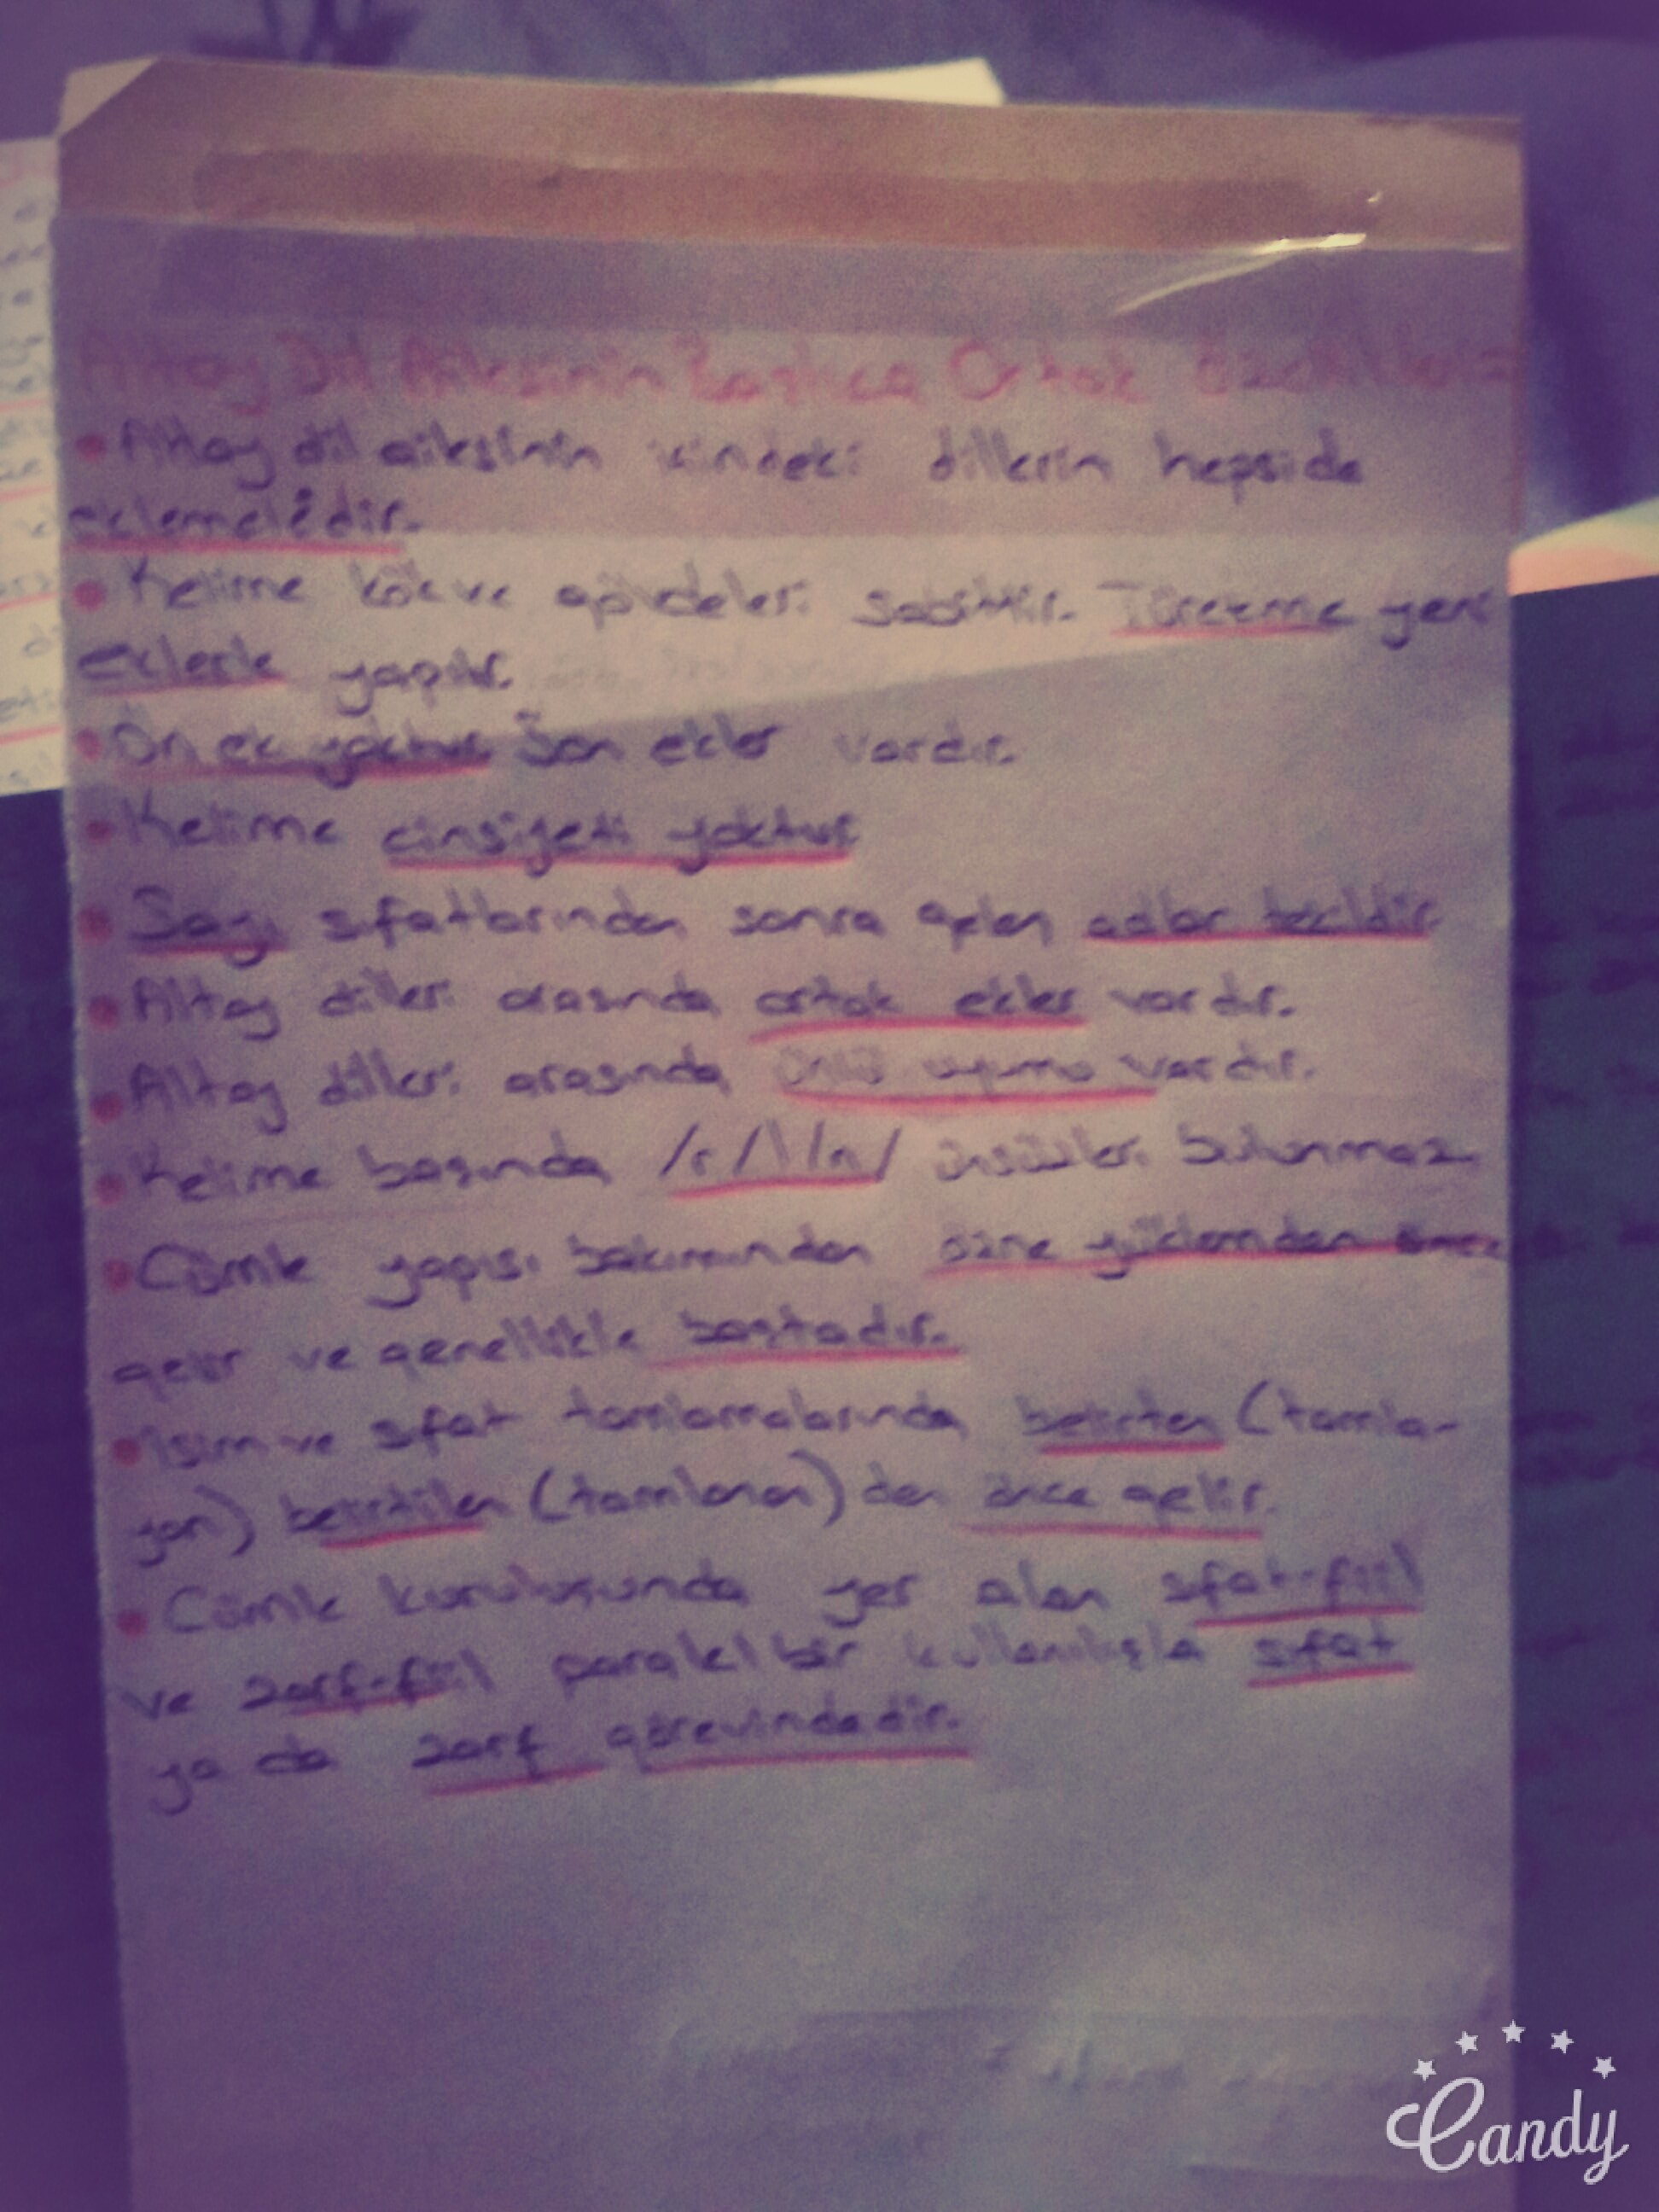 Altay Dil Ailesinin Başlıca Ortak Özellikleri:
• Altay dil ailesinin içindeki dillerin hepside
eklemelidir.
• Kelime kök ve gövdeleri sabittir. Türetme yeni
eklerle yapılır.
• Ön ek yoktur. Son ekler vardır.
• Kelime cinsiyeti yoktur
• Sayı sıfatlarından sonra gelen adlar tekildir
• Altay dilleri arasında ortak ekler vardır.
• Altay dilleri arasında ünlü uyumu vardır.
• Kelime başında /r/l/n/ ünsüzleri bulunmaz.
• Cümle yapısı bakımından özne yüklemden önce
gelir ve genellikle baştadır.
• İsim ve sıfat tamlamalarında belirten (tamla-
yan) belirtilen (tamlanan) dan önce gelir.
• Cümle kuruluşunda yer alan sıfat-fiil
ve zarf-fiil paralel bir kullanılışla sıfat
ya da zarf görevindedir.
Candy